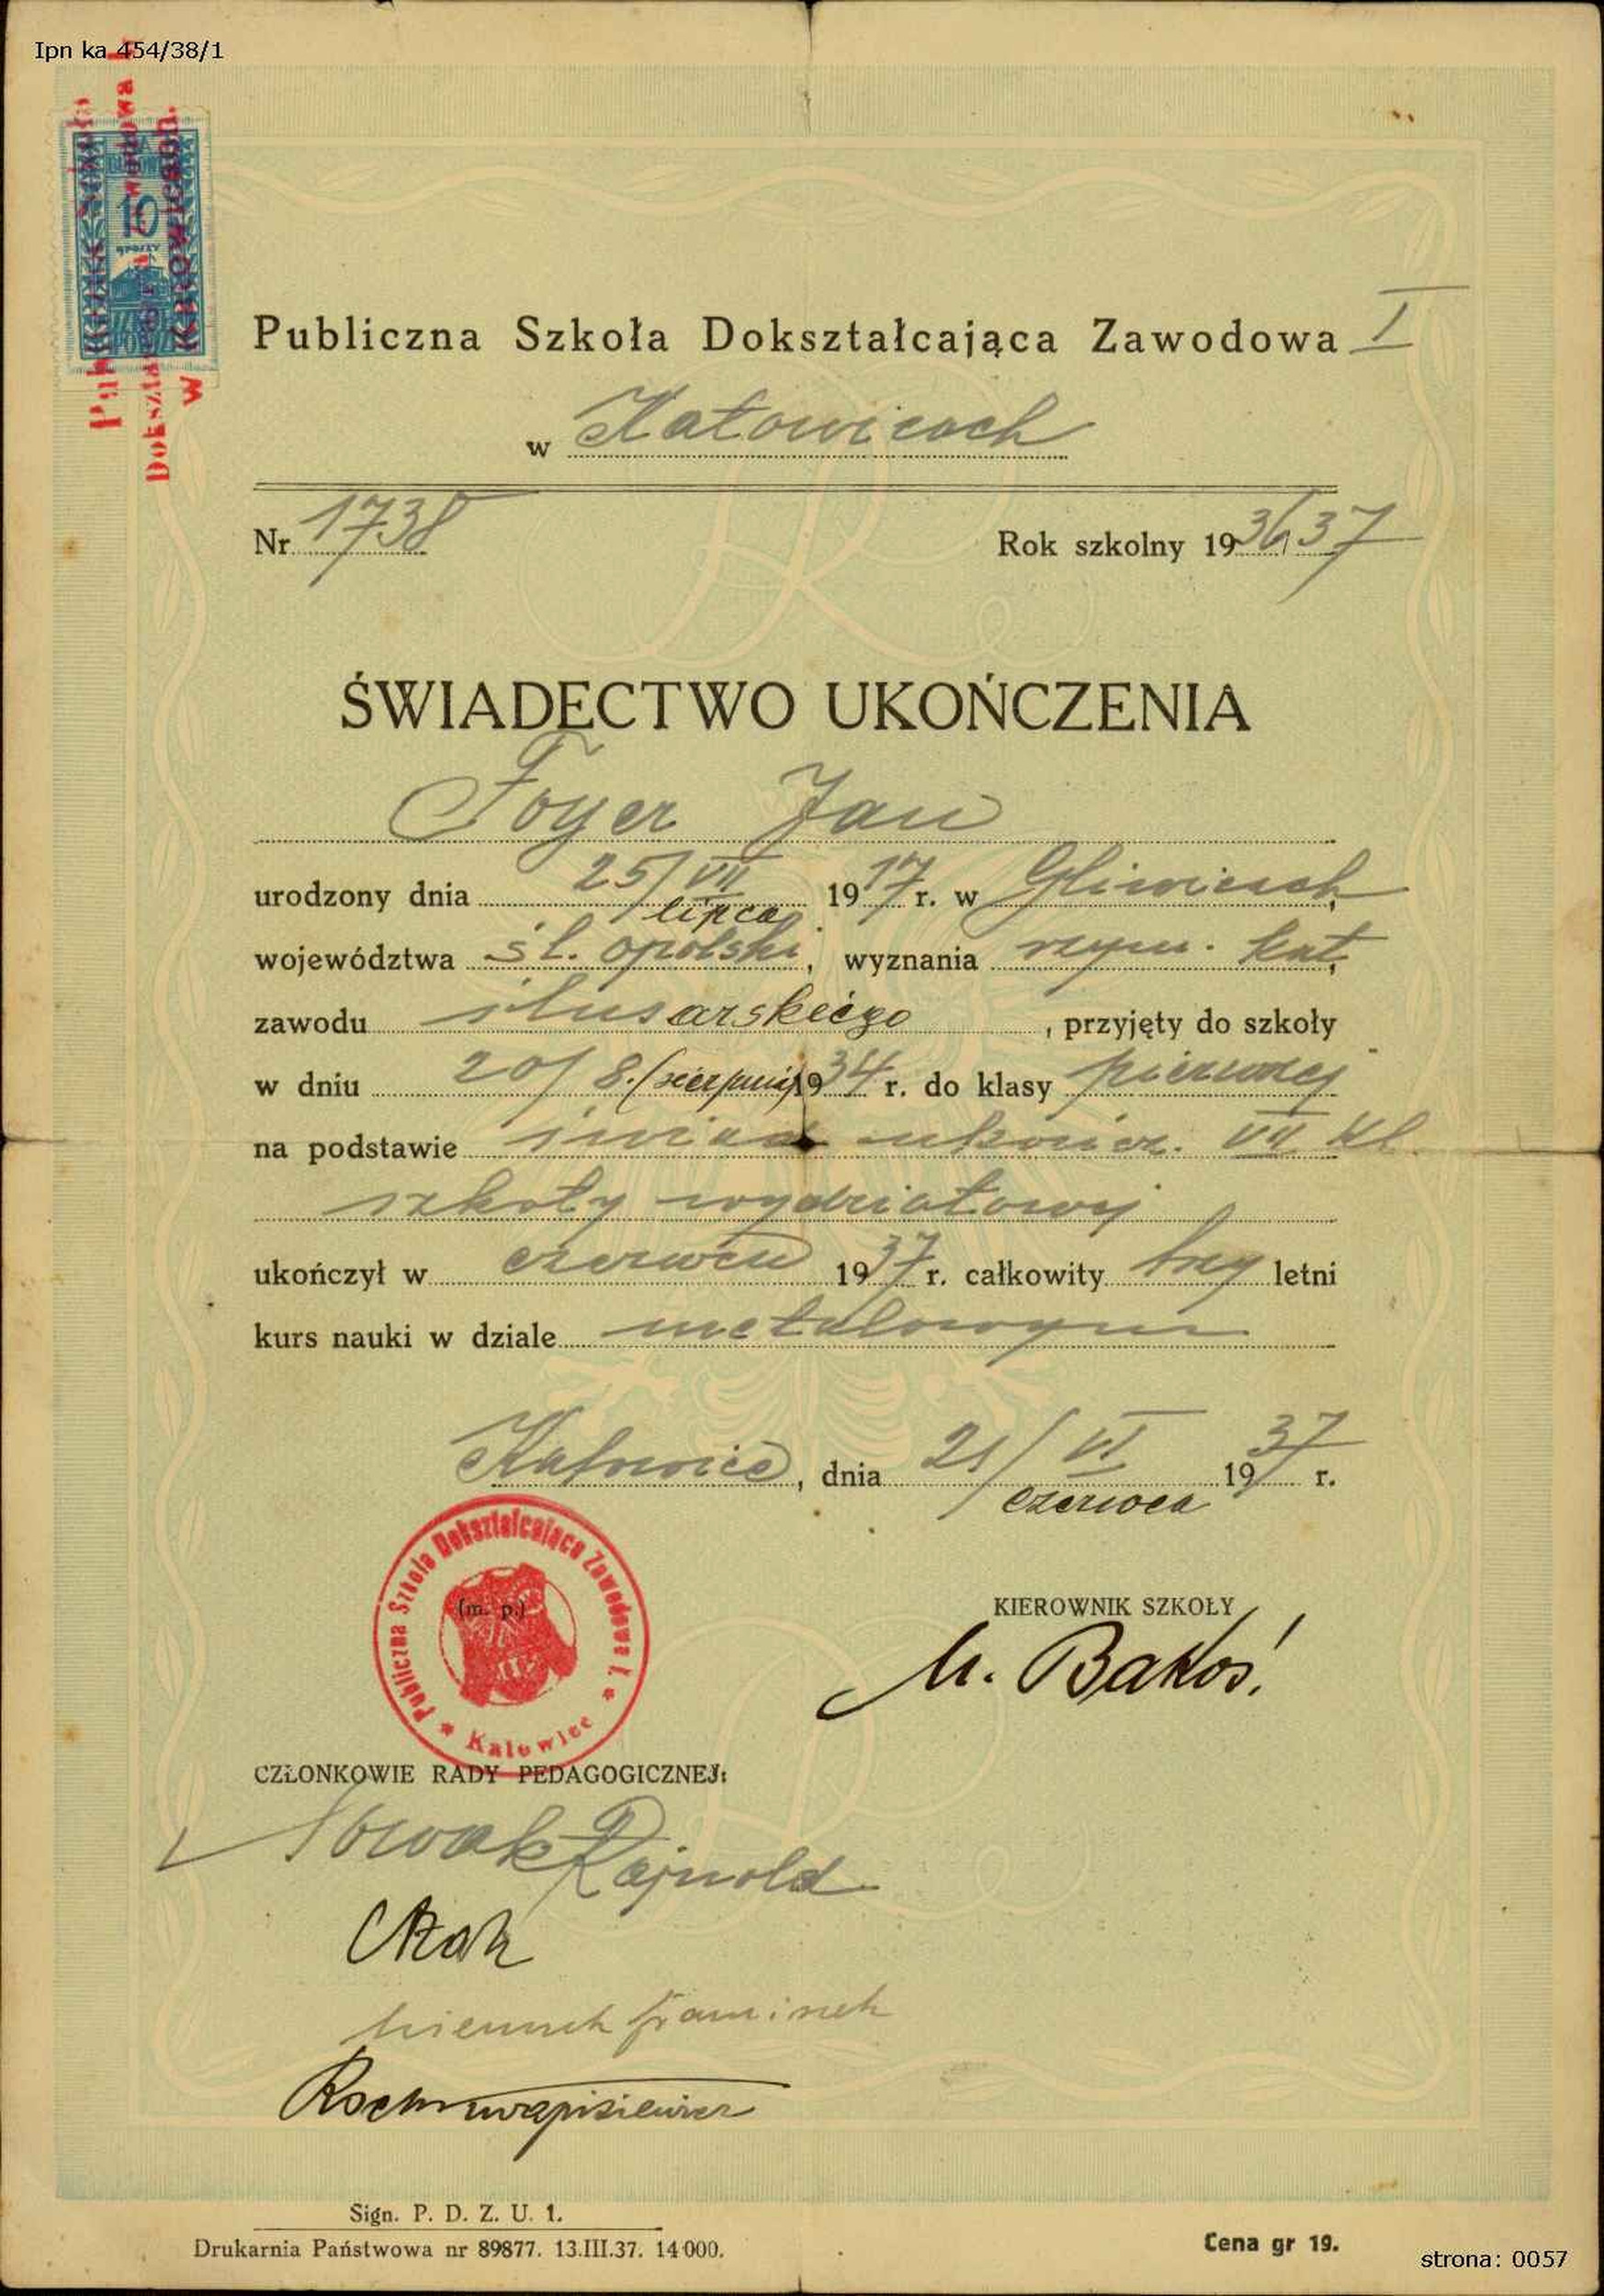 Ipn ka 454/38/1
10
GROSZY
Publiczna Szkoła
Dokształcająca Zawodowa I
w Katowicach.
Publiczna Szkoła Dokształcająca Zawodowa I
w Katowicach
Nr 1738 Rok szkolny 1936/37
ŚWIADECTWO UKOŃCZENIA
Foyer Jan
urodzony dnia 25/VII 1917 r. w Gliwicach,
lipca
województwa śl. opolski, wyznania rzym. kat,
zawodu ślusarskiego, przyjęty do szkoły
w dniu 20/8. (sierpnia) 1934 r. do klasy pierwszej
na podstawie świad. ukończ. VII kl.
szkoły wydziałowej
ukończył w czerwcu 1937 r. całkowity trzy letni
kurs nauki w dziale metalowym
Katowice, dnia 21/VI 1937 r.
czerwca
Publiczna Szkoła Dokształcająca Zawodowa I. * Katowice *
(m. p.)
KIEROWNIK SZKOŁY
M. Bakoś
CZŁONKOWIE RADY PEDAGOGICZNEJ:
Nowak Rajnold
Sign. P. D. Z. U. 1.
Drukarnia Państwowa nr 89877. 13.III.37. 14 000.
Cena gr 19.
strona: 0057